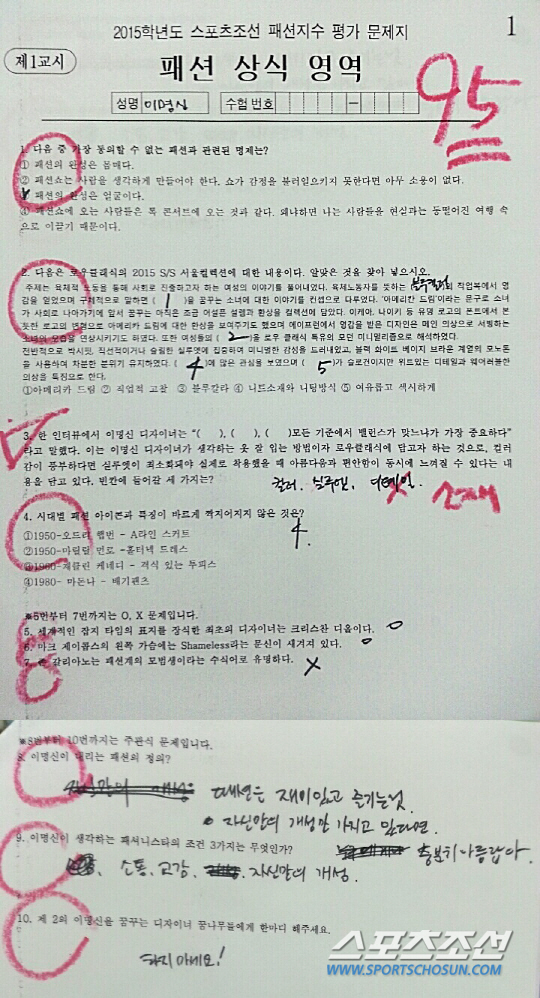 1
2015학년도 스포츠조선 패션지수 평가 문제지
제1교시
패션 상식 영역
95
성명 이명신 수험 번호 –
1. 다음 중 가장 동의할 수 없는 패션과 관련된 명제는?
① 패션의 완성은 몸매다.
② 패션쇼는 사람을 생각하게 만들어야 한다. 쇼가 감정을 불러일으키지 못한다면 아무 소용이 없다.
패션의 완성은 얼굴이다.
④ 패션쇼에 오는 사람들은 록 콘서트에 오는 것과 같다. 왜냐하면 나는 사람들을 현실과는 동떨어진 여행 속
으로 이끌기 때문이다.
2. 다음은 로우클래식의 2015 S/S 서울컬렉션에 대한 내용이다. 알맞은 것을 찾아 넣으시오.
주제는 육체적 노동을 통해 사회로 진출하고자 하는 여성의 이야기를 풀어내었다. 육체노동자를 뜻하는 작업복에서 영
감을 얻었으며 구체적으로 말하면 ( 1 )을 꿈꾸는 소녀에 대한 이야기를 컨셉으로 다루었다. '아메리칸 드림'이라는 문구로 소녀
가 사회로 나아가기에 앞서 꿈꾸는 아직은 조금 어설픈 설렘과 환상을 컬렉션에 담았다. 이케아, 나이키 등 유명 로고의 폰트에서 본
듯한 로고의 변형으로 아메리카 드림에 대한 환상을 보여주기도 했으며 에이프런에서 영감을 받은 디자인은 매인 의상으로 서빙하는
소녀의 모습을 연상시키기도 하였다. 또한 여성들의 ( 2 )을 로우 클래식 특유의 모던 미니멀리즘으로 해석하였다.
전반적으로 박시핏, 직선적이거나 슬림한 실루엣에 집중하여 미니멀한 감성을 드러내었고, 블랙 화이트 베이지 브라운 계열의 모노톤
을 사용하여 차분한 분위기 유지하였다. ( 4 )에 많은 관심을 보였으며 ( 5 )가 슬로건이지만 위트있는 디테일과 웨어러블한
의상을 특징으로 한다.
①아메리카 드림 ② 직업적 고찰 ③ 블루칼라 ④ 니드소재와 니팅방식 ⑤ 여유롭고 섹시하게
3. 한 인터뷰에서 이명신 디자이너는 "( ), ( ), ( )모든 기준에서 밸런스가 맞느냐가 가장 중요하다"
라고 말했다. 이는 이명신 디자이너가 생각하는 옷 잘 입는 방법이자 로우클래식에 담고자 하는 것으로, 컬러
감이 풍부하다면 실루엣이 최소화돼야 실제로 착용했을 때 아름다움과 편안함이 동시에 느껴질 수 있다는 내
용을 담고 있다. 빈칸에 들어갈 세 가지는?
컬러, 실루엣, 디테일.
소재
4. 시대별 패션 아이콘과 특징이 바르게 짝지어지지 않은 것은?
4.
①1950-오드리 햅번 - A라인 스커트
②1950-마릴린 먼로 -홀터넥 드레스
③1960-재클린 케네디 - 격식 있는 투피스
④1980- 마돈나 - 배기팬츠
※5번부터 7번까지는 O, X 문제입니다.
5. 세계적인 잡지 타임의 표지를 장식한 최초의 디자이너는 크리스찬 디올이다. O
6. 마크 제이콥스의 왼쪽 가슴에는 Shameless라는 문신이 새겨져 있다. O
7. 존 갈리아노는 패션계의 모범생이라는 수식어로 유명하다. X
※8번부터 10번까지는 주관식 문제입니다.
8. 이명신이 내리는 패션의 정의?
패션은 재미있고 즐기는것.
자신만의 개성만 가지고 있다면.
9. 이명신이 생각하는 패셔니스타의 조건 3가지는 무엇인가?
충분히 아름답다.
소통, 교감, 자신만의 개성.
10. 제 2의 이명신을 꿈꾸는 디자이너 꿈나무들에게 한마디 해주세요.
하지마세요!
스포츠조선
WWW.SPORTSCHOSUN.COM